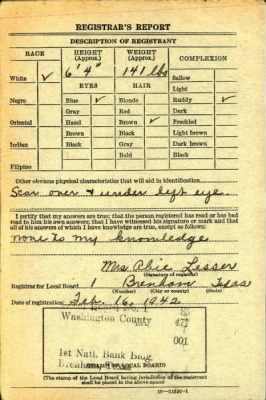 REGISTRAR'S REPORT
DESCRIPTION OF REGISTRANT
RACE HEIGHT (Approx.) WEIGHT (Approx.) COMPLEXION
White ✓ 6' 4" 141 lbs Sallow
EYES HAIR Light
Negro Blue ✓ Blonde Ruddy ✓
Gray Red Dark
Oriental Hazel Brown ✓ Freckled
Brown Black Light brown
Indian Black Gray Dark brown
Bald Black
Filipino
Other obvious physical characteristics that will aid in identification
Scar over & under left eye.
I certify that my answers are true; that the person registered has read or has had
read to him his own answers; that I have witnessed his signature or mark and that
all of his answers of which I have knowledge are true, except as follows:
none to my knowledge
Mrs Abie Lesser
(Signature of registrar)
Registrar for Local Board 1 Brenham Texas
(Number) (City or county) (State)
Date of registration Feb. 16, 1942
Washington County 477
001
1st Natl. Bank Bldg
Brenham, Texas
(STAMP OF LOCAL BOARD)
(The stamp of the Local Board having jurisdiction of the registrant
shall be placed in the above space)